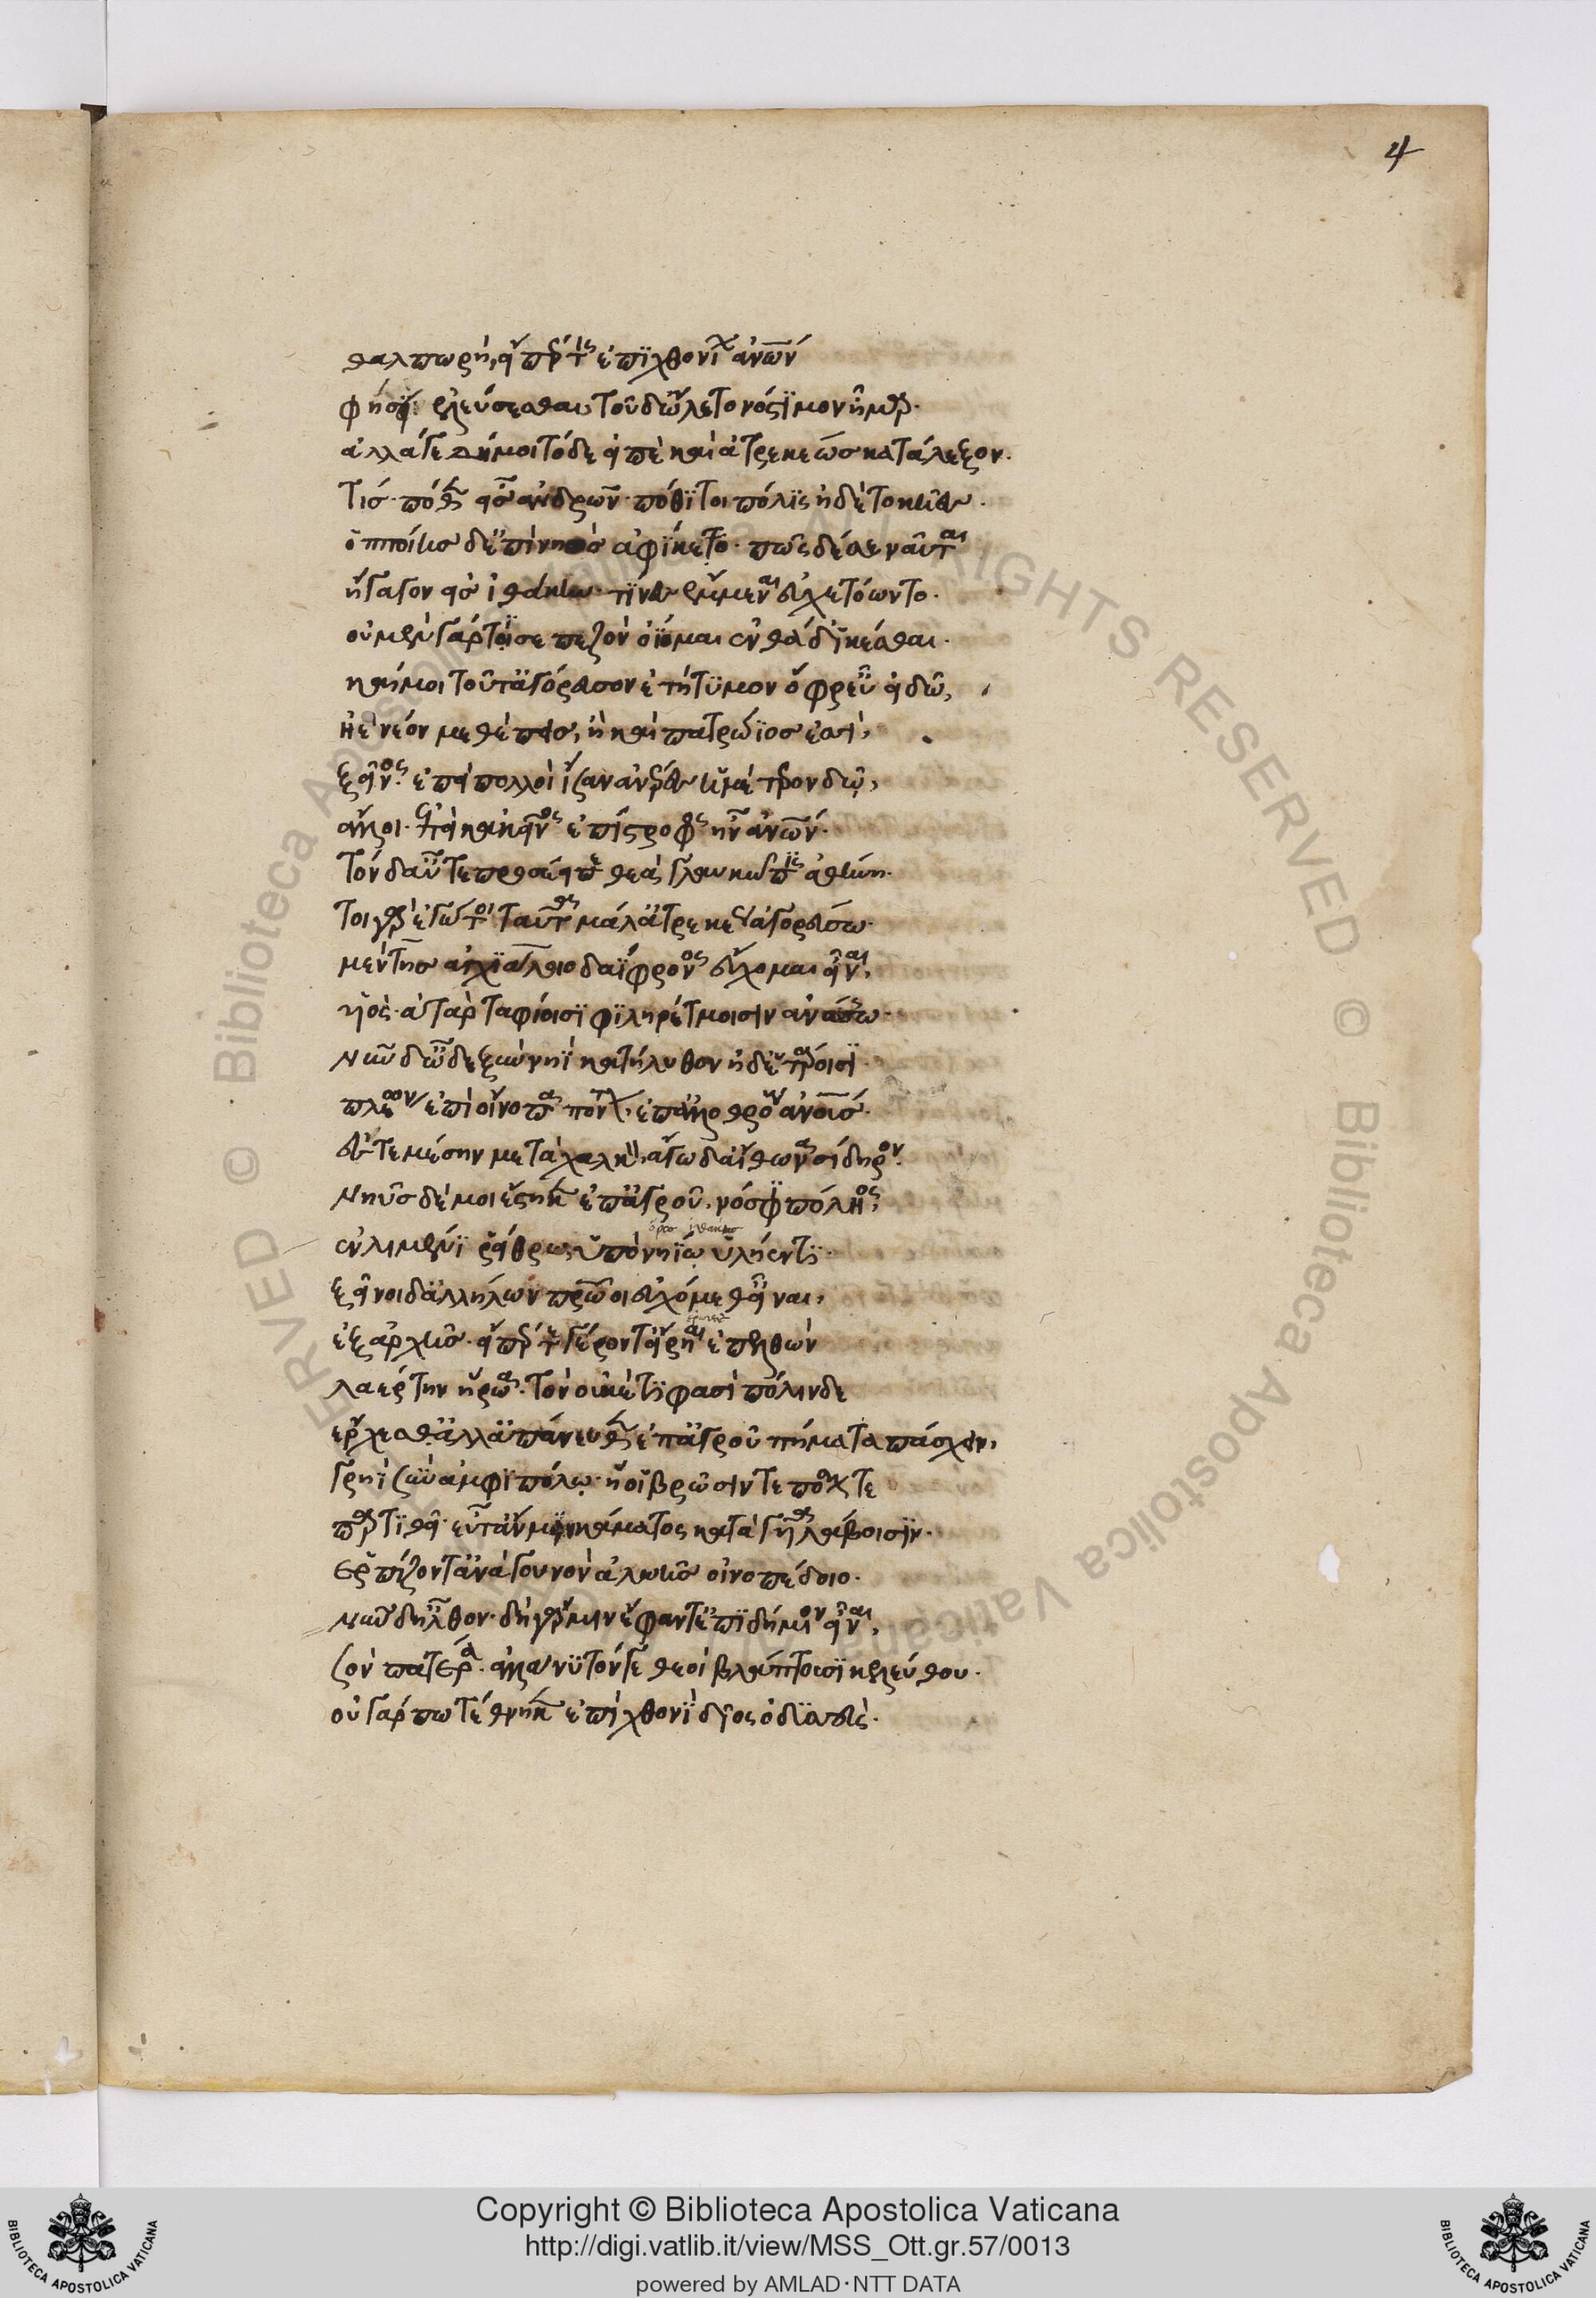 4
θαλπωρὴ, εἴπερ τις ἐπϊχθονίων ἀνῶν
φησὶν ἐλεύσεσθαι, τοῦ δ' ὤλετο νόστϊμον ἦμαρ.
ἀλλάγε δή μοι τόδε εἰπὲ καὶ ἀτρεκέως κατάλεξον.
τίς πόθεν εἰς ἀνδρῶν· πόθϊ τοι πόλϊς ἠδὲ τοκῆες.
ὁπποίης δ' ἐπὶ νηὸς ἀφΐκετο· πῶς δέ σε ναῦται
ἤγαγον εἰς ἰθάκην· τΐνες ἔμμεναι εὐχετόωντο.
οὐ μὲν γάρ τϊ σε πεζὸν ὀΐομαι ἐνθάδ' ϊκέσθαι.
καί μοι τοῦτ' ἀγόρευσον ἐτήτϋμον ὄφρ' εὖ εἰδῶ,
ἠὲ νέον μεθέπεις, ἢ καὶ πατρώϊος ἐσσὶ,
ξεῖνος· ἐπεὶ πολλοὶ ἴσαν ἀνέρες ἡμέτερον δῶ,
ἄλλοι· ἐπεὶ καὶ κεῖνος ἐπίστροφος ἦν ἀνῶν.
τὸν δ' αὖτε προσέειπε θεὰ γλαυκῶπϊς ἀθήνη.
τοιγὰρ ἐγώ τοι ταῦτα μάλ' ἀτρεκέως ἀγορεύσω.
μέντης ἀγχϊάλοιο δαΐφρονος εὔχομαι εἶναι,
ϋἱὸς· ἀτὰρ ταφίοισϊ φϊληρέτμοισιν ἀνάσσω.
νῦν δ' ὧδε ξὺν νηῒ κατήλυθον ἠδ' ἑτάροισϊ
πλέων ἐπὶ οἴνοπα πόντον, ἐπ' ἀλλοθρόους ἀνοις.
ἐς τεμέσην μετὰ χαλκὸν ἄγω δ' αἴθωνα σίδηρον.
νηῦς δέ μοι ἕστηκεν ἐπ' ἀγροῦ, νόσφϊ πόληος,
ὄρος ἰθάκης
ἐν λιμένϊ ῥείθρω, ὑπὸ νηΐω ὑλήεντϊ.
ξεῖνοι δ' ἀλλήλων πατρώϊοι εὐχόμεθ' εἶναι,
ἐξ ἀρχῆς· εἴπερ τε γέροντ' εἴρηαι ἐπελθὼν
λαέρτην ἥρωα· τὸν οὐκέτϊ φασὶ πόλινδε
ἔρχεσθ' ἀλλ' ἀπάνευθεν ἐπ' ἀγροῦ πήματα πάσχειν,
γρηῒ σὺν ἀμφϊπόλω· ἥ οἱ βρῶσίν τε πόσιν τε
παρτϊθεῖ· εὖτ' ἄν μϊν κάματος κατὰ γυῖα λάβοισϊν.
ἑρπύζοντ' ἀνὰ γουνὸν ἀλωῆς οἰνοπέδοιο.
νῦν δ' ἦλθον· δὴ γάρ μιν ἔφαντ' ἐπϊδήμιον εἶναι,
σὸν πατέρα· ἀλλά νϋ τόνγε θεοὶ βλάπτουσϊ κελεύθου.
οὐ γάρ πω τέθνηκεν ἐπὶ χθονὶ δῖος ὀδϋσσεὺς.
Copyright © Biblioteca Apostolica Vaticana
http://digi.vatlib.it/view/MSS_Ott.gr.57/0013
powered by AMLAD·NTT DATA
BIBLIOTECA APOSTOLICA VATICANA
BIBLIOTECA APOSTOLICA VATICANA